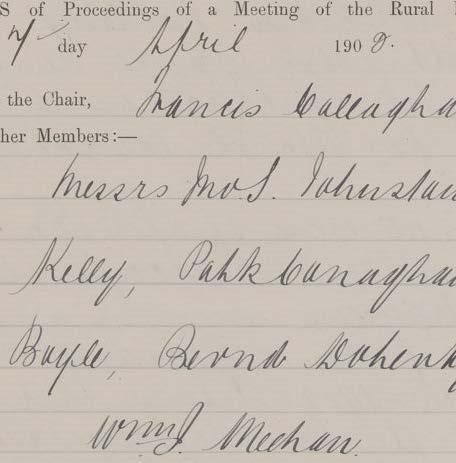 S of Proceedings of a Meeting of the Rural
day April 1908.
the Chair, Francis Callagha
her Members:—
Messrs Jno. S. Johnston
Kelly, Patk Canagha
Boyle, Bernd Doherty
Wm J. Meehan.